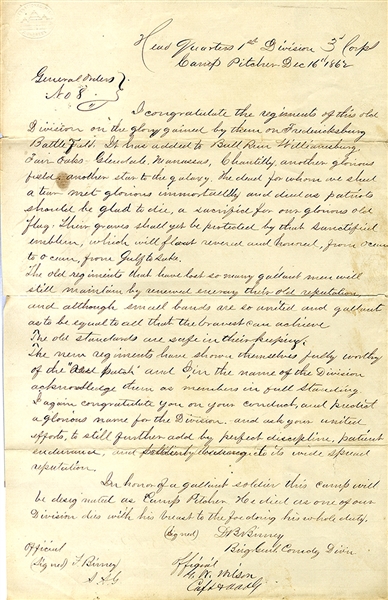 Head Quarters 1st Division 3d Corps
Camp Pitcher Dec 16th 1862
General Orders
No 8
I congratulate the regiments of this old
Division on the glory gained by them on Fredericksburg
Battle Field. It has added to Bull Run Williamsburg
Fair Oaks Glendale, Manassas, Chantilly, another glorious
field, another star to the galaxy. The dead for whom we shed
a tear met glorious immortality and died as patriots
should be glad to die, a sacrifice for our glorious old
flag. Their graves shall yet be protected by that sanctified
emblem, which will float revered and honored, from ocean
to ocean, from Gulf to Lake.
The old regiments that have lost so many gallant men will
still maintain by renewed energy their old reputation
and although small bands are so united and gallant
as to be equal to all that the bravest can achieve
The old standards are safe in their keeping.
The new regiments have shown themselves fully worthy
of the "Red Patch" and I in the name of the Division
acknowledge them as members in full standing
I again congratulate you on your conduct, and predict
a glorious name for the Division, and ask your united
efforts, to still further add by perfect discipline, patient
endurance, and Soldierly to its wide spread
reputation.
In honor of a gallant soldier this camp will
be designated as Camp Pitcher. He died as one of our
Division dies with his breast to the foe doing his whole duty.
(Signed) D B Birney
Brig Genl Comdg Divn
Official
(Signed) F. Birney
A A G
Official
Wilson
Capt & AAAG